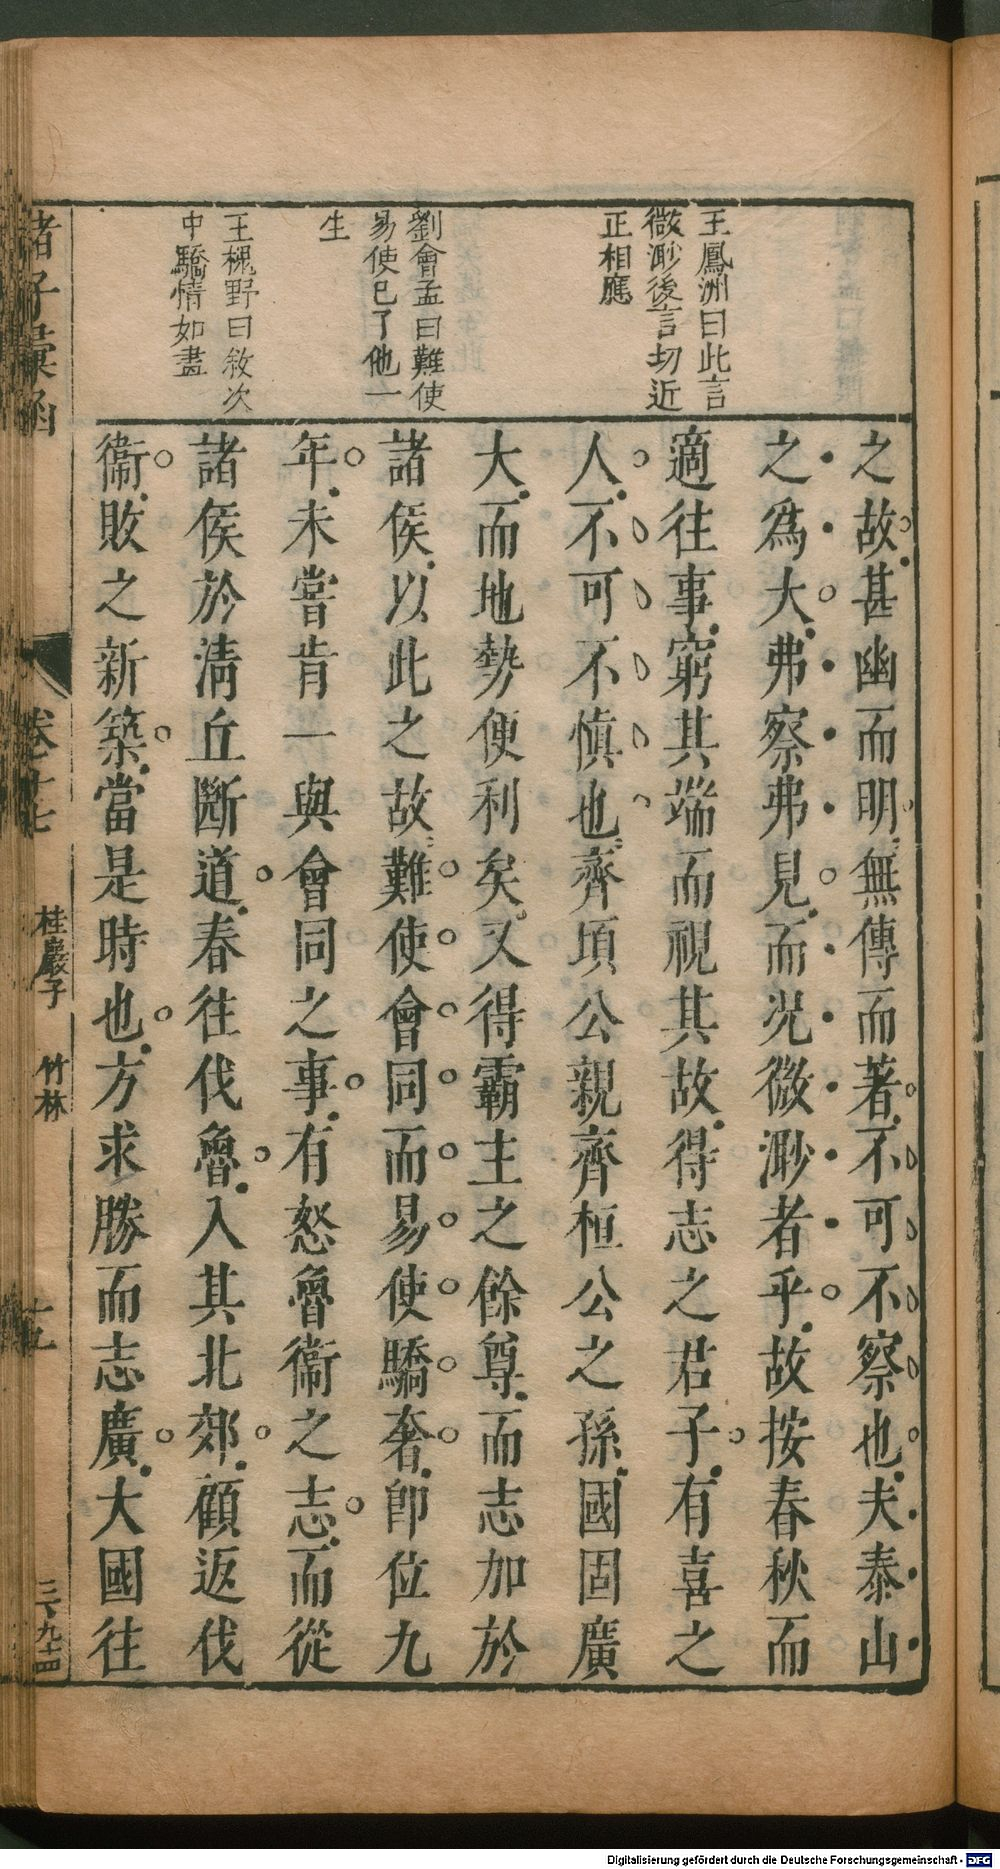 王鳳洲曰此言
微渺後言切近
正相應
劉會孟曰難使
易使已了他一
生
王槐野曰敘次
中驕情如畫
之故甚幽而明無傳而著不可不察也夫泰山
之爲大弗察弗見而况微渺者乎故按春秋而
適往事窮其端而視其故得志之君子有喜之
人不可不慎也齊頃公親齊桓公之孫國固廣
大而地勢便利矣又得霸主之餘尊而志加於
諸侯以此之故難使會同而易使驕奢即位九
年未嘗肯一與會同之事有怒魯衞之志而從
諸侯於清丘斷道春往伐魯入其北郊顧返伐
衞敗之新築當是時也方求勝而志廣大國往
諸子彙函
卷十七
桂巖子 竹林
十五
三九十四
Digitalisierung gefördert durch die Deutsche Forschungsgemeinschaft - DFG